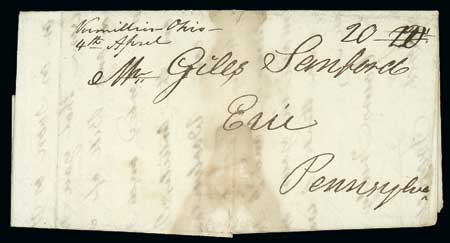 Vermillion Ohio
4th April
20
Mr Giles Sanford
Erie
Pennsylva